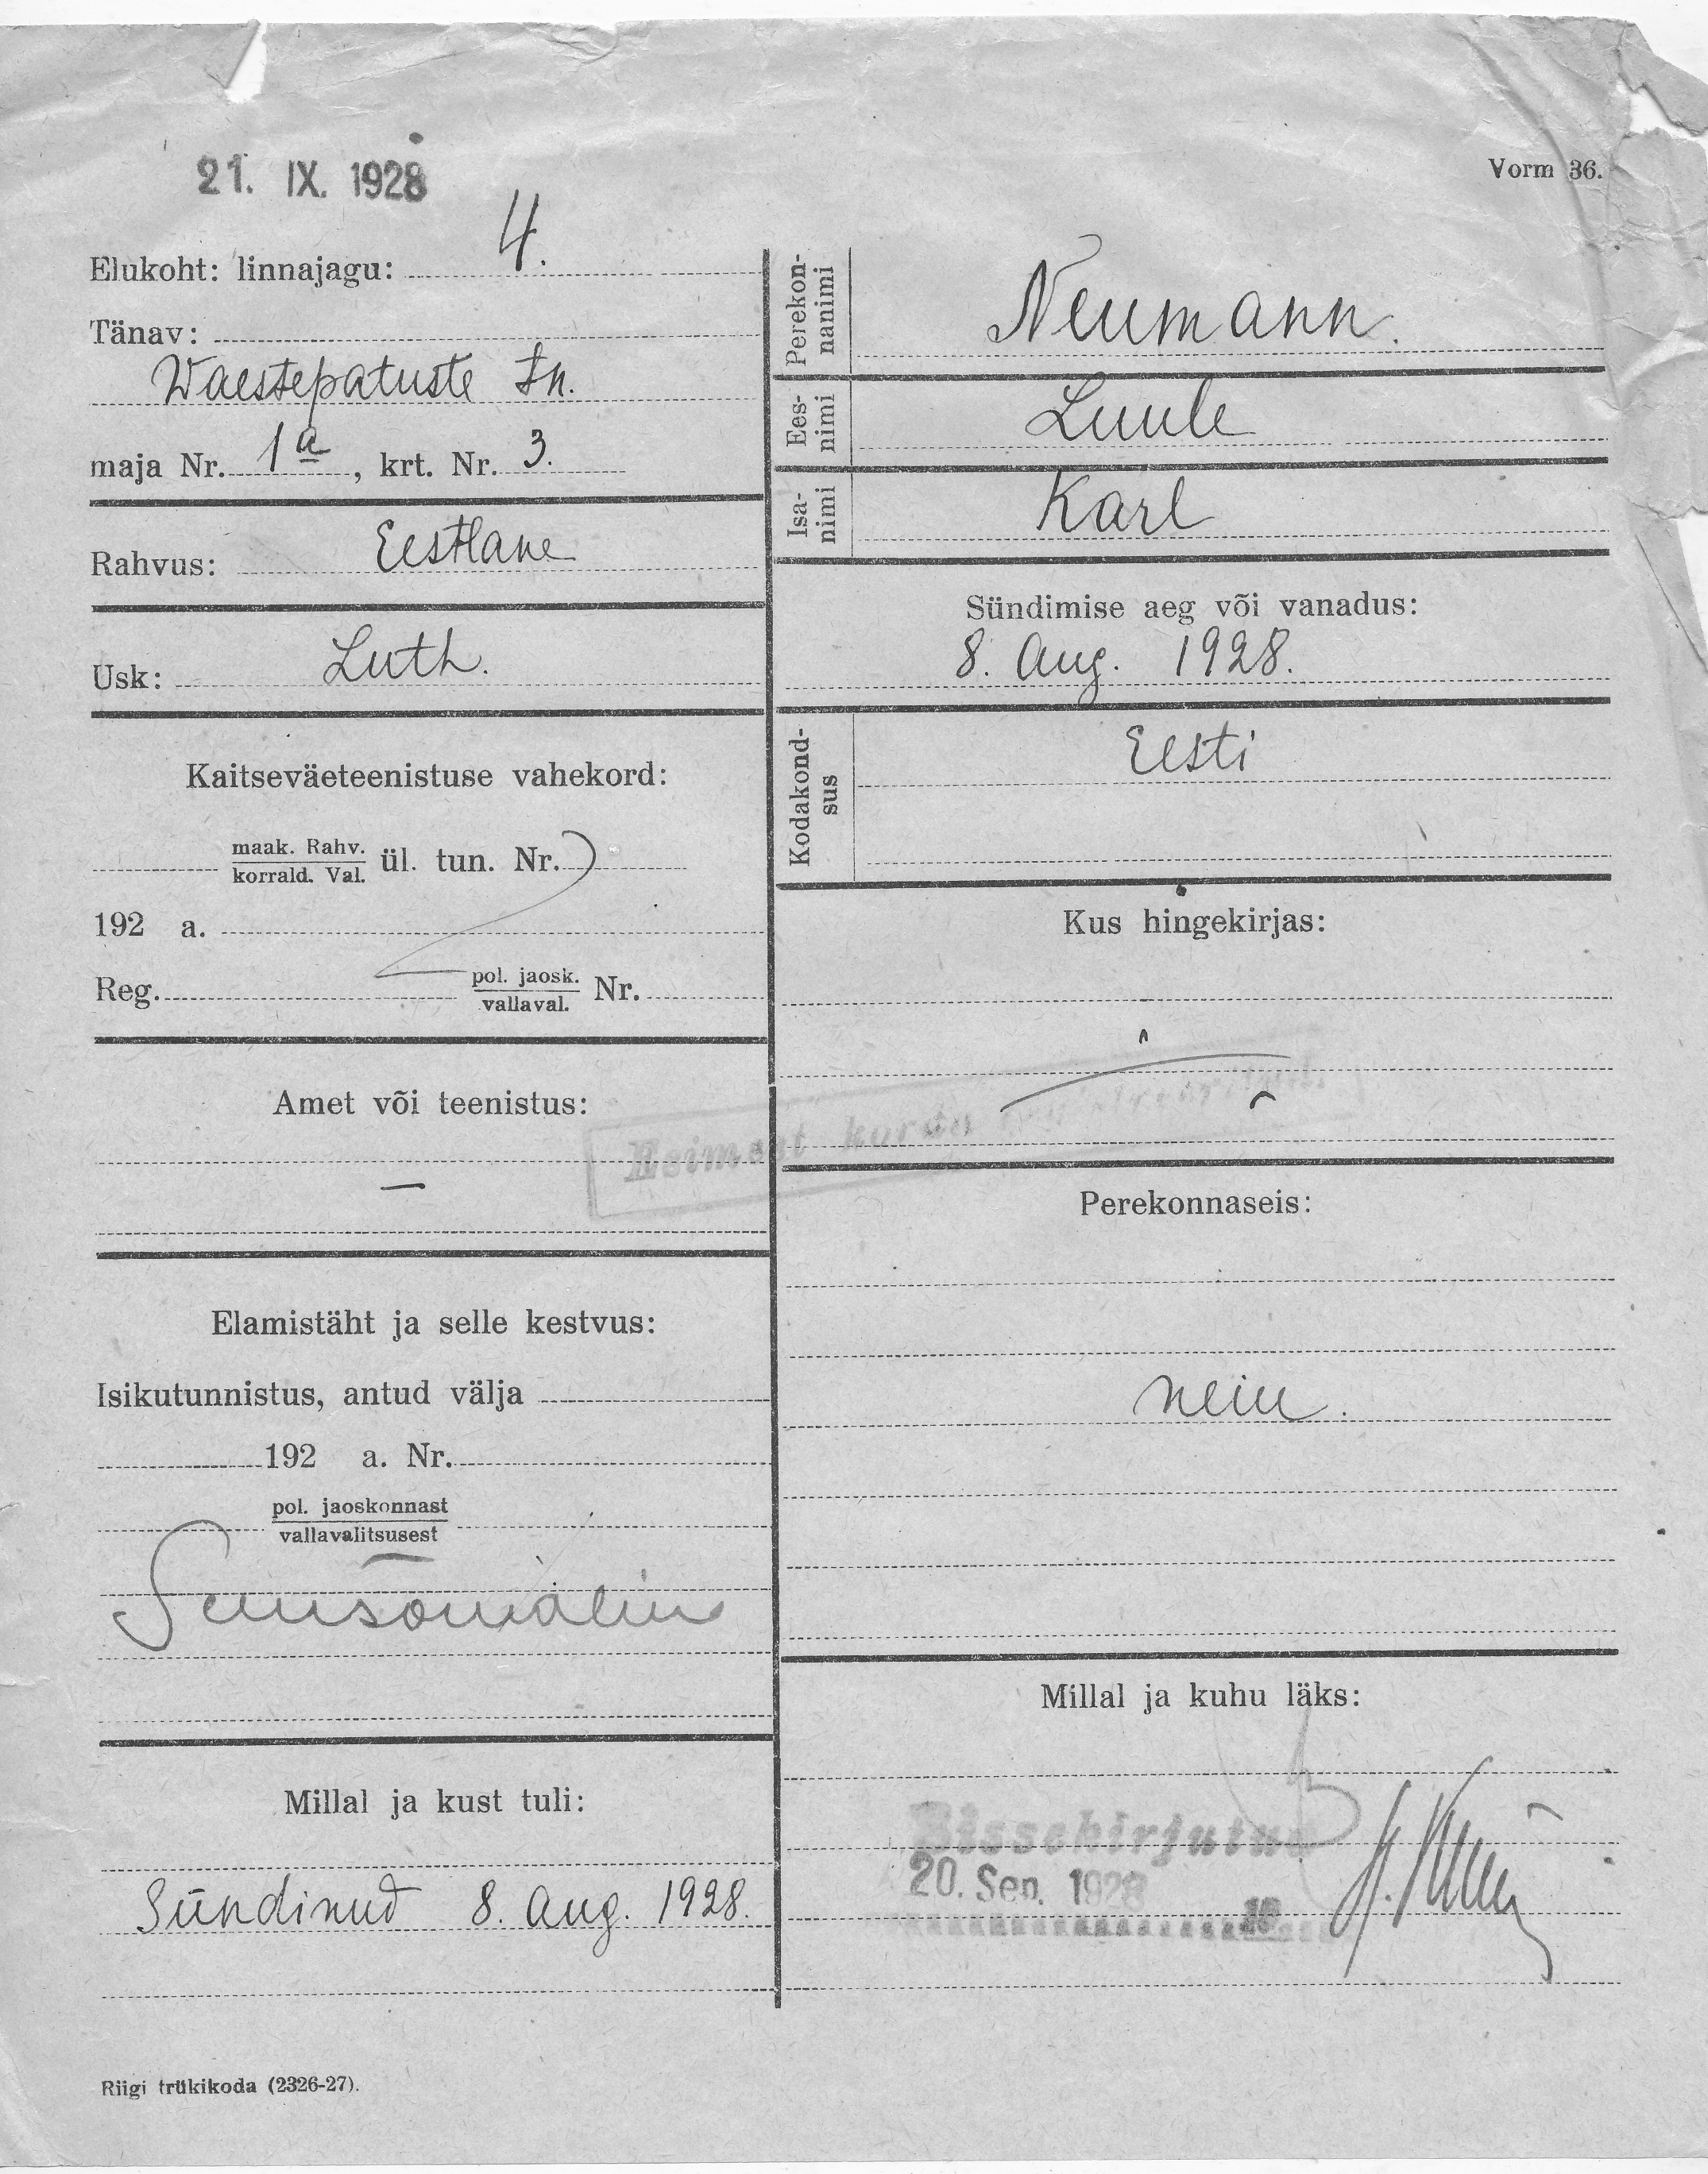 21. IX. 1928
Vorm 36.
Elukoht: linnajagu: 4.
Tänav:
Waestepatuste tn.
maja Nr. 1a, krt. Nr. 3.
Rahvus: Eestlane
Usk: Luth.
Kaitseväeteenistuse vahekord:
maak. Rahv.
korrald. Val. ül. tun. Nr.
192 a.
Reg. pol. jaosk.
vallaval. Nr.
Amet või teenistus:
—
Elamistäht ja selle kestvus:
Isikutunnistus, antud välja
192 a. Nr.
pol. jaoskonnast
vallavalitsusest
Millal ja kust tuli:
Sündinud 8. Aug. 1928.
Perekon-
nanimi
Neumann.
Ees-
nimi
Luule
Isa-
nimi
Karl
Sündimise aeg või vanadus:
8. Aug. 1928.
Kodakond-
sus
Eesti
Kus hingekirjas:
Esimest korda
Perekonnaseis:
neiu.
Millal ja kuhu läks:
Sissekirjutud
20. Sep. 1928
19
Riigi trükikoda (2326-27).